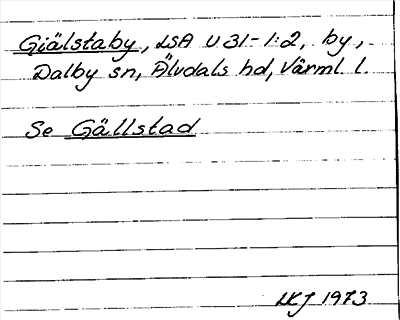 Gjälstaby, LSA U31-1:2, by,
Dalby sn, Älvdals hd, Värml. l.
Se Gällstad
1973